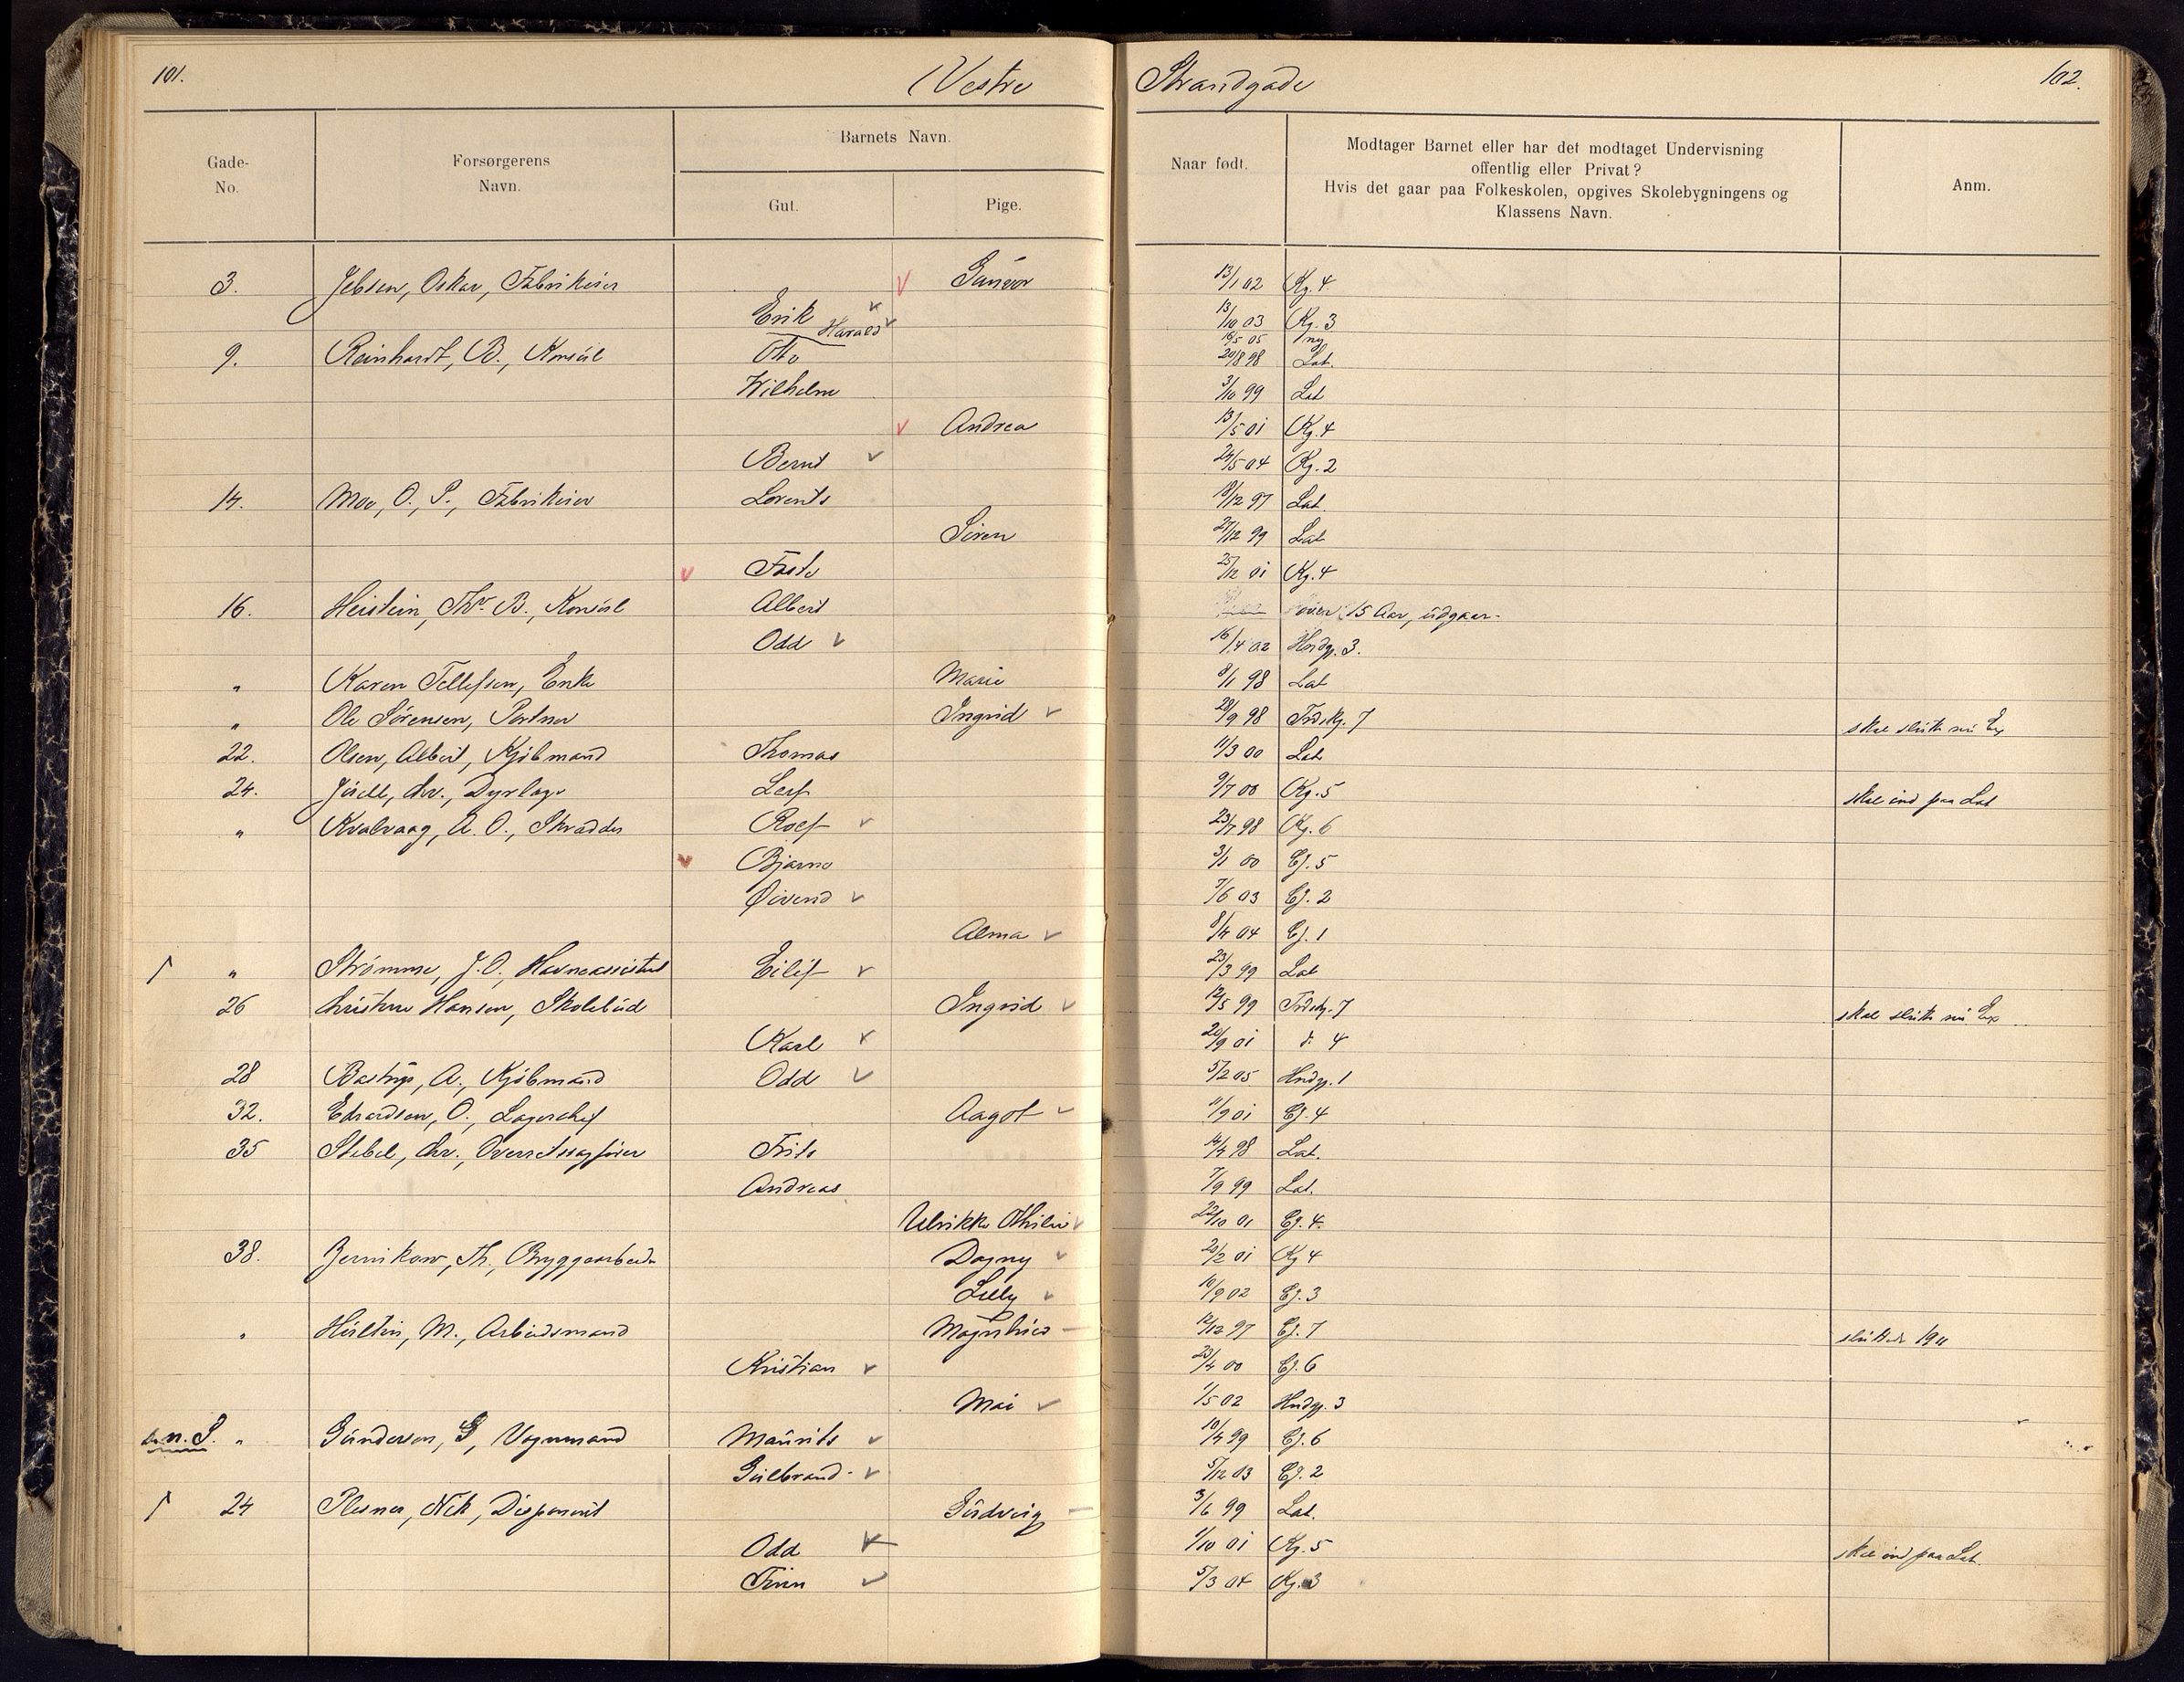 101. Vestre Strandgade 102.
Gade-No. Forsørgerens Navn. Barnets Navn. Gut. Pige. Naar født. Modtager Barnet eller har det modtaget Undervisning offentlig eller Privat? Hvis det gaar paa Folkeskolen, opgives Skolebygningens og Klassens Navn. Anm.
3. Jebsen, Oskar, Fabrikeier Gunvor 13/1 02 Kg. 4
Erik 13/10 03 Kg. 3
Harald 16/5 05
9. Reinhardt, B., Konsul Otto 20/8 98 Lat.
Wilhelm 3/10 99 Lat
Andrea 13/5 01 Kg. 4
Bernt 24/5 04 Kg. 2
14. Moe, O. P., Fabrikeier Lorents 18/12 97 Lat.
Siren 27/12 99 Lat
25/12 01 Kg. 4
16. Heistein, Thv. B., Konsul Albert over 15 Aar, udgaar.
Odd 16/4 02 Hndg. 3.
" Karen Tellefsen, Enke Marie 8/1 98 Lat
" Ole Sørensen, Portner Ingrid 28/9 98 Trdskg. 7 skal slutte nu Ex
22. Olsen, Albert, Kjøbmand Thomas 11/3 00 Lat
24. Juell, Chr., Dyrlæge Leif 9/7 00 Kg. 5 skal ind paa Lat
" Kvalvaag, A. O., Skrædder Rolf 23/7 98 Kg. 6
Bjarne 3/1 00 Eg. 5
Øivend 7/6 03 Eg. 2
Alma 8/4 04 Eg. 1
" Strømme, J. O., Havneassistent Eilif 23/3 99 Lat
26 Christine Hansen, Skolebud Ingrid 12/5 99 Trdskg. 7 skal slutte nu Ex
Karl 20/9 01 d: 4
28 Bastrup, A., Kjøbmand Odd 5/2 05 Hndg. 1
32. Edvardsen, O., Lagerchef Aagot 11/9 01 Eg. 4
35 Stebel, Chr., Overretssagfører Frits 14/4 98 Lat.
Andreas 7/9 99 Lat.
Ulrikke Othilie 22/10 01 Eg. 4.
38. Jernikow, Th., Bryggearbeider Dagny 20/2 01 Kg 4
Lilly 10/9 02 Eg. 3
" Hultin, M., Arbeidsmand Magnhild 12/12 97 Eg. 7 sluttede 1911
Kristian 23/4 00 Eg. 6
Mai 1/5 02 Hndg. 3
n. S. " Gundersen, G, Vognmand Maurits 10/4 99 Eg. 6
Gulbrand 5/12 03 Eg. 2
24 Plesner, Nik, Disponent Gudveig 3/6 99 Lat.
Odd 1/10 01 Kg. 5 skal ind paa Lat.
Finn 5/3 04 Kg. 3